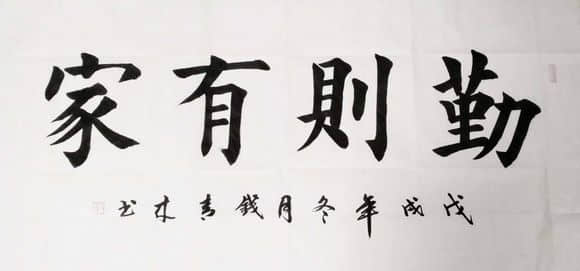 勤則有家
戊戌年冬月錢青木书